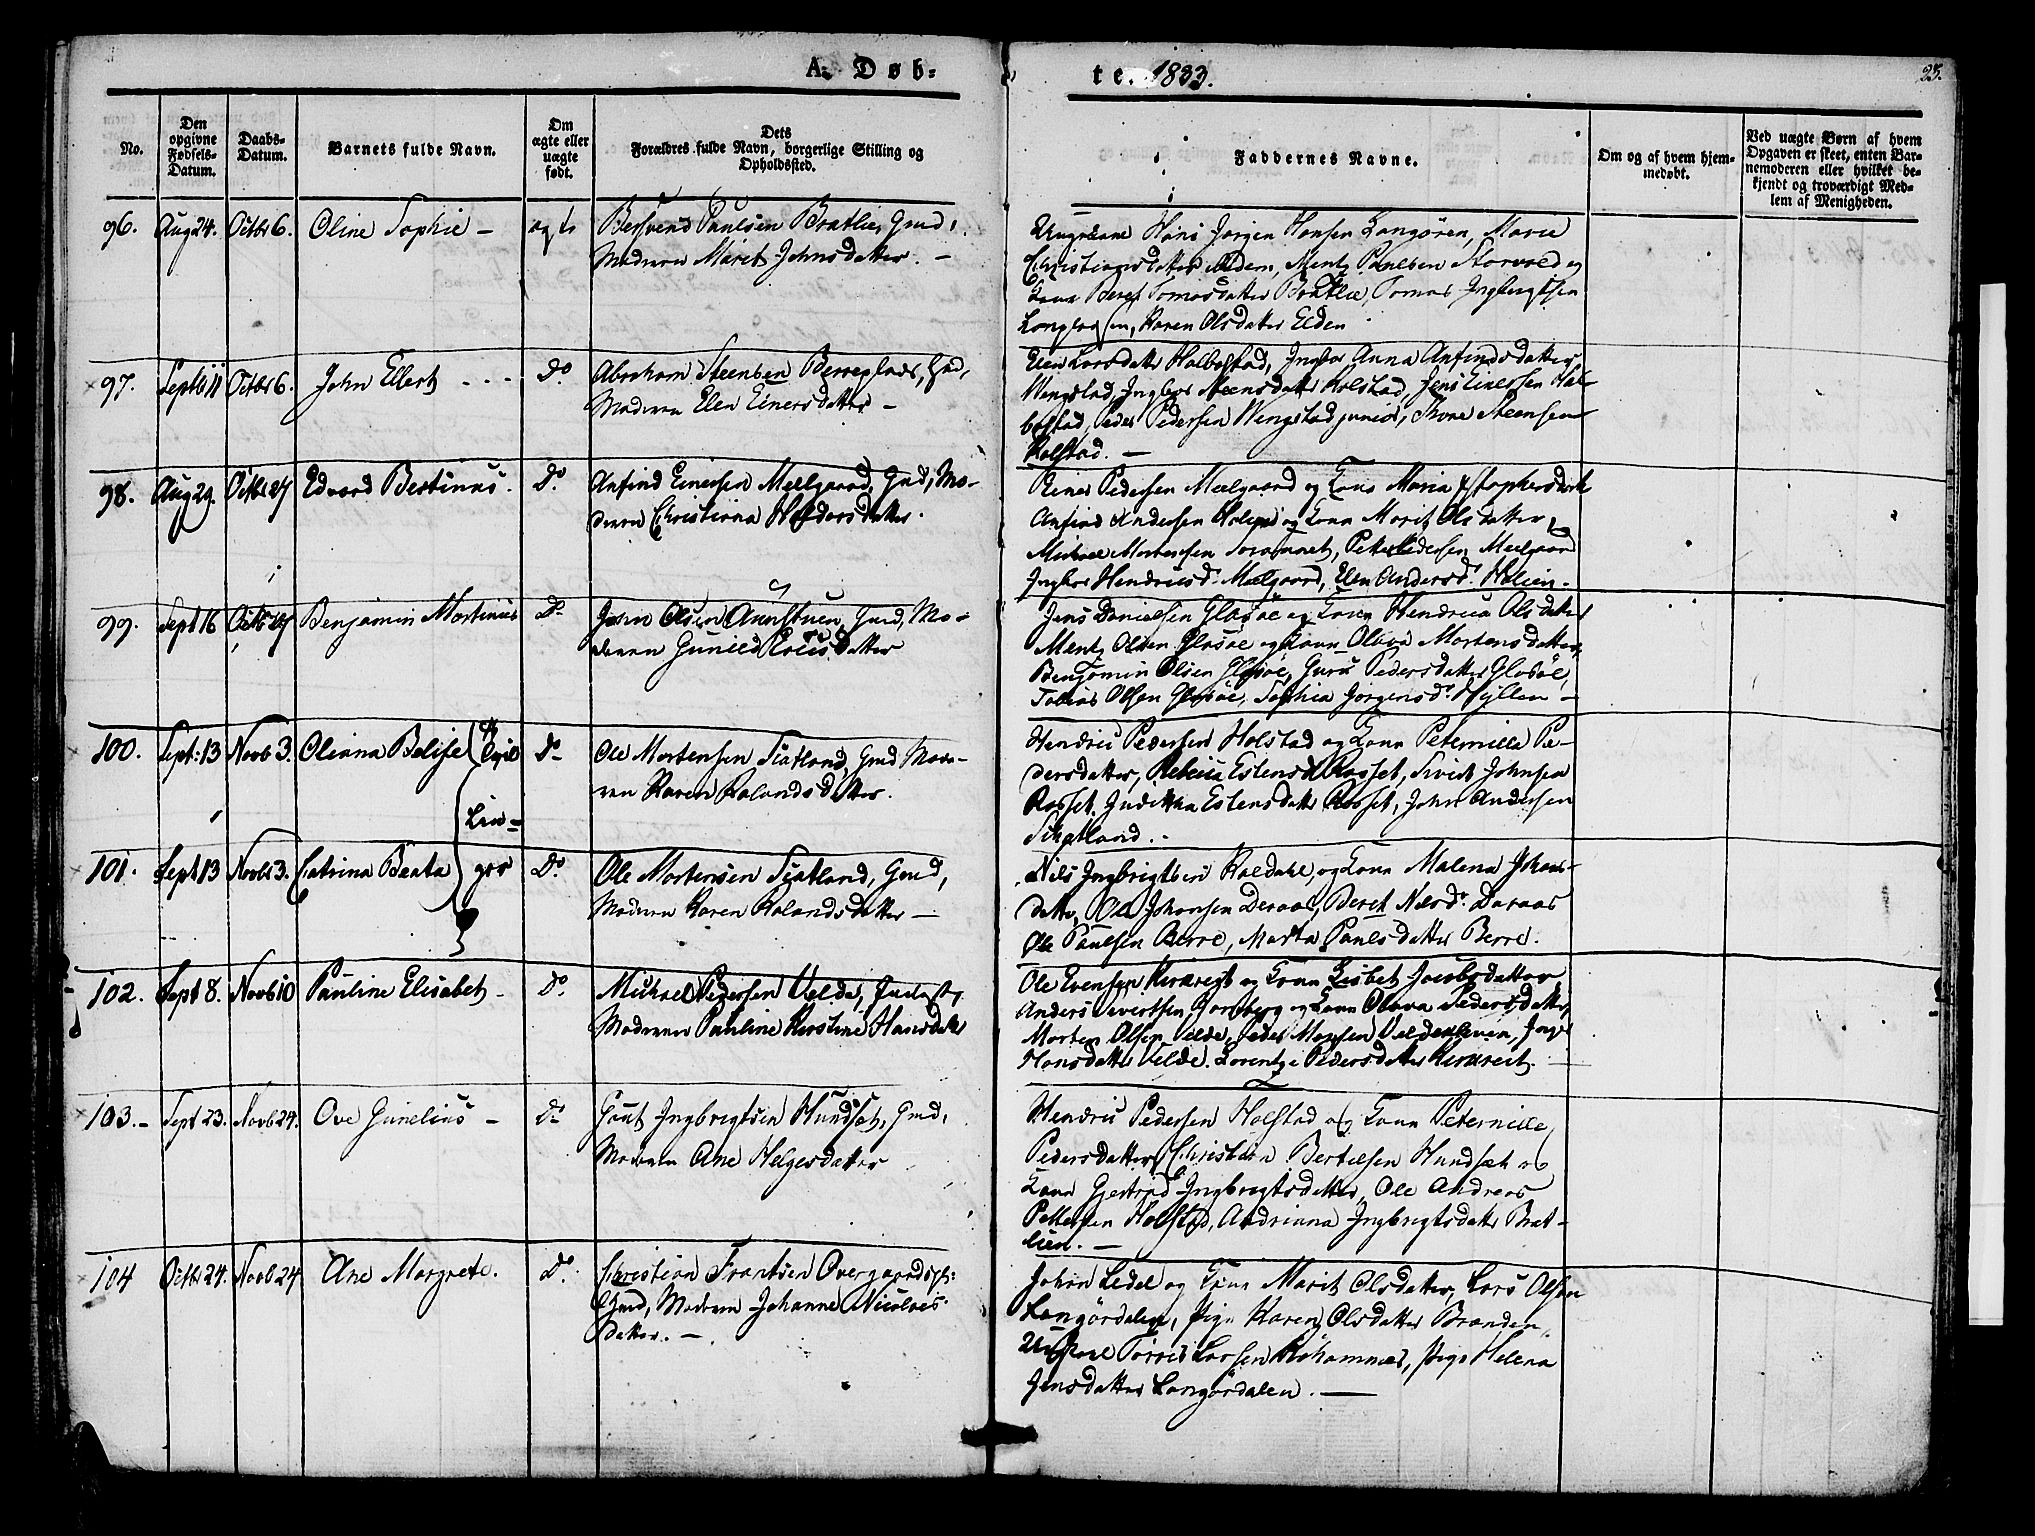 A. Døb-
te. 1833.
25.
No.
Den opgivne Fødsels-Datum.
Daabs-Datum.
Barnets fulde Navn.
Om ægte eller uægte født.
Dets Forældres fulde Navn, borgerlige Stilling og Opholdssted.
Faddernes Navne.
Om og af hvem hjem-medøbt.
Ved uægte Børn af hvem Opgaven er skeet, enten Bar-nemoderen eller hvilket be-kjendt og troværdigt Med-lem af Menigheden.
96. Aug 24. Octbr 6. Oline Sophie – ægte
Bersvend Paulsen Bratlie, Gmd,
Moderen Marit Johnsdatter. –
Ungkarl Hans Jørgen Hansen Langøren, Marie
Christiansdatter ibidem, Mentz Paulsen Storvold og
Kone Beret Tomasdatter Bratlie, Tomas Ingbrigtsen
Karen Olsdatter Elden
97. Septb 11 Octbr 6. John Ellert – – – Do
Abraham Steensen Berreplads, Gmd,
Moderen Elen Einersdatter –
Elen Larsdatter Halbostad, Ingbor Anna Anfindsdatter
Wengstad, Ingbor Steensdatter Holstad, Jens Einersen Hal-
bostad, Peder Pedersen Wengstad junior, Steensen
Holstad. –
98. Aug 29. Octbr 27 Edvard Bertinus. Do
Anfind Einersen Meelgaard, Gmd, Mo-
deren Christiana datter.
Einer Pedersen Meelgaard og Kone Maria
Anfind Andersen Holien og Kone Marit Olsdatter,
Michael Mortensen Peter Pedersen Meelgaard
Ingbor Hendricsd. Meelgaard, Elen Andersd. Holien.
99. Sept 16 Octbr 27 Benjamin Martinus Do
John Olsen Aunstuen, Gmd, Mo-
deren Gunild datter
Jens Danielsen Glasøe og Kone Hendrica Olsdatter
Mentz Olsen Glasøe og Kone Olava Mortensdatter,
Benjamin Olsen Glasøe, Guru Pedersdatter Glasøe,
Tobias Olsen Glasøe, Sophia Jørgensd. Hyllen –
100. Sept. 13 Novb 3. Oliana Belise Do
Tvil
Lin-
ger
Ole Mortensen Siatland, Gmd Mode-
ren Karen Rolandsdatter.
Hendric Pedersen Holstad og Kone Peternille Pe-
dersdatter, Rebecca Estensd. Rosset, Sivert Johnsen
Rosset. Estensdatter Rosset, John Andersen
Siatland. .
101. Sept 13 Novbr 3. Catrina Beata Do
Ole Mortensen Siatland, Gmd,
Moderen Karen Rolandsdatter –
Nils Ingbrigtsen Kaldahl, og Kone Malena Johans-
datter, Ole Johansen Deraas, Beret Nilsd. Daraas
Ole Paulsen Berre, Marta Paulsdatter Berre.
102. Sept 8. Novb 10 Pauline Elisabet – Do
Michael Pedersen Velde, Inderst,
Moderen Pauline Kirstine Hansdatter
Ole Evensen og Kone Lisbet Jacobsdatter
Anders Sivertsen og Kone Olava Pedersdatter
Morten Olsen Velde, Peder Monsen
Hansdatter Velde. Lorentze Pedersdatter
103. – Sept 23. Novb 24. Ove Gunelius – Do
Gaut Ingbrigtsen Hundset, Gmd,
Moderen Ane Helgesdatter
Hendric Pedersen Holstad og Kone Peternille
Pedersdatter, Christian Bertelsen Hundset og
Kone Gjertrud Ingbrigtsdatter, Ole Andreas
Pettersen Holstad, Andrianna Ingbrigtsdatter Brat-
lien. –
104 Octbr 24. Novb 24 Ane Margrete. Do
Christian Frantsen Overgaard
Gmd, Moderen Johanne Nicolais-
datter. –
Johan Ledel og Kone Marit Olsdatter, Lars Olsen
Langørdalen, Pige Karen Olsdatter Branden,
Ungkarl Larsen Pige Helena
Jensdatter Langørdalen. –